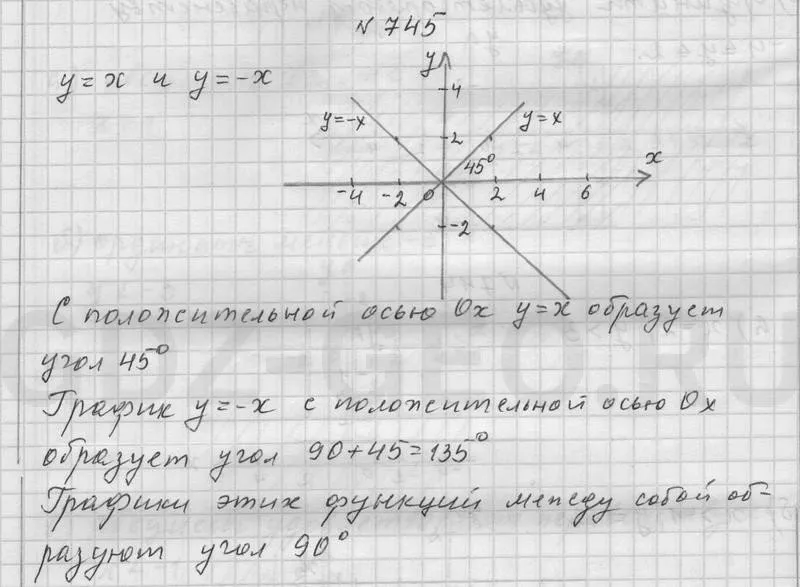 N 745
y = x и y = -x
y
4
y=-x
2
y = x
45°
x
-4 -2 0 2 4 6
-2
С положительной осью Ox y = x образует
угол 45°
График y = -x с положительной осью Ox
образует угол 90+45=135°
Графики этих функций между собой об-
разуют угол 90°
GDZ-GEO.RU